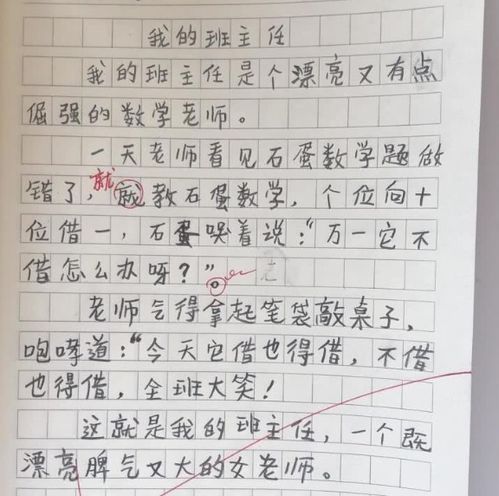 我的班主任
我的班主任是个漂亮又有点
倔强的数学老师。
一天老师看见石蛋数学题做
就
错了,就教石蛋数学,个位向十
位借一,石蛋哭着说:“万一它不
借怎么办呀?”。
老师气得拿起笔袋敲桌子,
咆哮道:“今天它借也得借,不借
也得借,全班大笑!
这就是我的班主任,一个既
漂亮脾气又大的女老师。